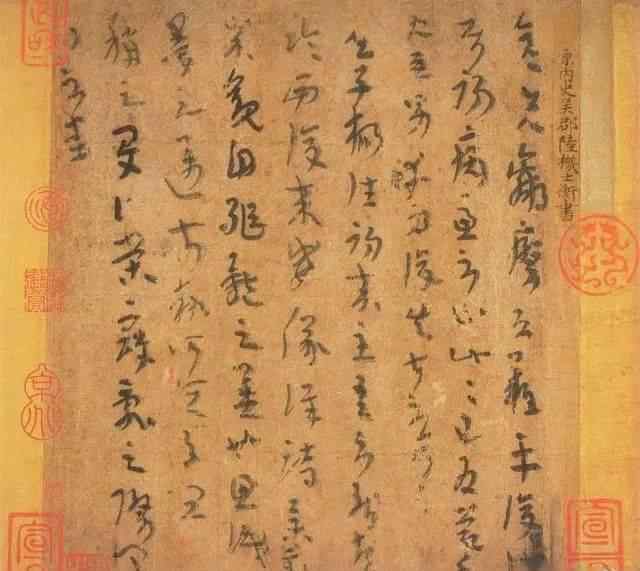 晉內史吳郡陸機士衡書
彦先羸瘵恐難平復
屬初病慮不止此此已為慶
使唯男幸為復失前憂耳
吳子楊往初來主吾不能盡
臨西復來威儀詳跱舉動
成觀自軀體之美也思識
愛之邁前執所恆有宜
稱之夏伯榮寇亂之際聞
問不悉